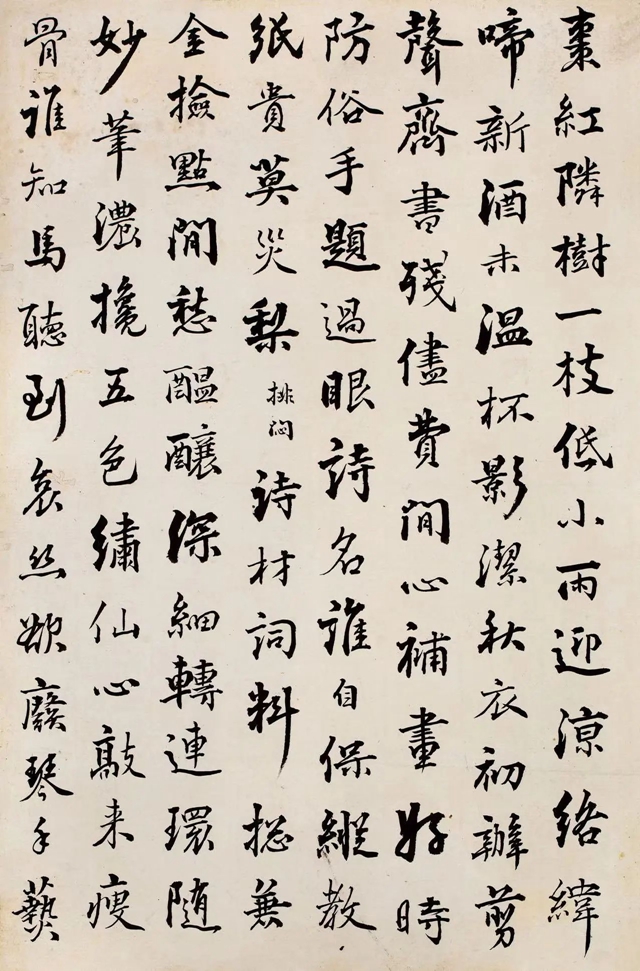 棗紅隣樹一枝低小雨迎涼絡緯
啼新酒未温杯影潔秋衣初辦剪
聲齋書殘儘費閒心補畫好時
防俗手題過眼詩名誰自保縱教
紙貴莫災梨 排悶 詩材詞料捴兼
金撿點閒愁醖釀深細轉連環隨
妙筆濃攙五色繡仙心敲来瘦
骨誰知馬聽到哀絲欲廢琴手藝